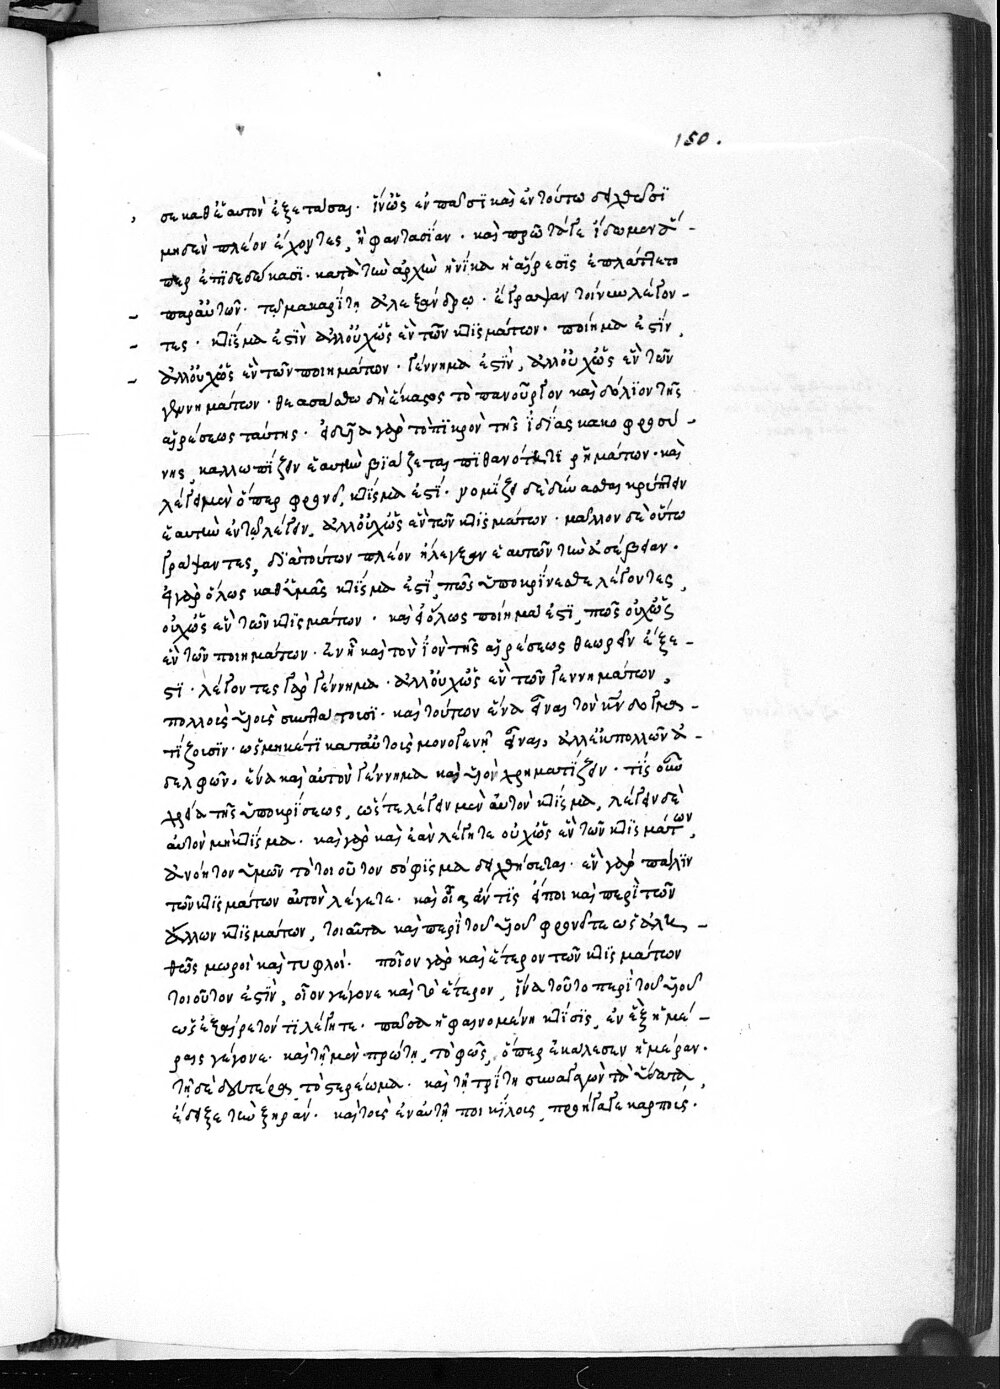 150.
σε καθ' ἑαυτὸν ἐξετάσαι· ἵν' ὡς ἐν πᾶσι καὶ ἐν τούτω δειχθῶσι
μηδὲν πλέον ἔχοντες, ἢ φαντασίαν· καὶ πρῶτά γε ἴδωμεν ἅ-
περ ἐπιδεδώκασι· κατὰ τὴν ἀρχὴν ἡνίκα ἡ αἵρεσις ἐπλάττετο
παρ' αὐτῶν· τῷ μακαρίτη ἀλεξάνδρω· ἔγραψαν τοίνυν λέγον-
τες· κτίσμα ἐστὶν ἀλλ' οὐχ ὡς ἓν τῶν κτισμάτων· ποίημα ἐστίν,
ἀλλ' οὐχ ὡς ἓν τῶν ποιημάτων· γέννημα ἐστὶν, ἀλλ' οὐχ ὡς ἓν τῶν
γεννημάτων· θεασάσθω δὴ ἕκαστος τὸ πανοῦργον καὶ δόλιον τῆς
αἱρέσεως ταύτης· εἰδυῖα γὰρ τὸ πικρὸν τῆς ἰδίας κακοφροσύ-
νης, καλλωπίζειν ἑαυτὴν βιάζεται πιθανότητι ῥημάτων· καὶ
λέγει μὲν ὅπερ φρονεῖ, κτίσμα ἐστί· νομίζει δὲ δύνασθαι κρύπτειν
ἑαυτὴν ἐν τῷ λέγειν, ἀλλ' οὐχ ὡς ἓν τῶν κτισμάτων· μᾶλλον δὲ οὕτω
γράψαντες, διὰ τούτων πλέον ἤλεγξαν ἑαυτῶν τὴν ἀσέβειαν·
εἰ γὰρ ὅλως καθ' ὑμᾶς κτίσμα ἐστί, πῶς ὑποκρίνεσθε λέγοντες,
οὐχ ὡς ἓν τῶν κτισμάτων· καὶ εἰ ὅλως ποίημα ἐστι, πῶς οὐχ ὡς
ἓν τῶν ποιημάτων· ἐν ᾗ καὶ τὸν ἰὸν τῆς αἱρέσεως θεωρεῖν ἔξε-
στι· λέγοντες γὰρ γέννημα· ἀλλ' οὐχ ὡς ἓν τῶν γεννημάτων,
πολλοὺς υἱοὺς συντάττουσι· καὶ τούτων ἕνα εἶναι τὸν κύριον δογμα-
τίζουσιν· ὡς μηκέτι κατ' αὐτοὺς μονογενῆ εἶναι, ἀλλ' ἐκ πολλῶν ἀ-
δελφῶν, ἕνα καὶ αὐτὸν γέννημα καὶ υἱὸν χρηματίζειν· τίς οὖν
χρεία τῆς ὑποκρίσεως, ὥστε λέγειν μὲν αὐτὸν κτίσμα, λέγειν δὲ
αὐτὸν μὴ κτίσμα· καὶ γὰρ καὶ ἐὰν λέγητε οὐχ ὡς ἓν τῶν κτισμάτων,
ἀνόητον ὑμῶν τὸ τοιοῦτον σόφισμα δειχθήσεται· ἓν γὰρ πάλιν
τῶν κτισμάτων αὐτὸν λέγετε· καὶ οἷα ἄν τις εἴποι καὶ περὶ τῶν
ἄλλων κτισμάτων, τοιαῦτα καὶ περὶ τοῦ υἱοῦ φρονεῖτε ὡς ἀλη-
θῶς μωροὶ καὶ τυφλοί· ποῖον γὰρ καὶ ἕτερον τῶν κτισμάτων
τοιοῦτον ἐστὶν, οἷον γέγονε καὶ τὸ ἕτερον, ἵνα τοῦτο περὶ τοῦ υἱοῦ
ὡς ἐξαίρετόν τι λέγητε· πᾶσα ἡ φαινομένη κτίσις, ἐν ἓξ ἡμέ-
ραις γέγονε· καὶ τῇ μὲν πρώτη, τὸ φῶς, ὅπερ ἐκάλεσεν ἡμέραν·
τῇ δὲ δευτέρα, τὸ στερέωμα· καὶ τῇ τρίτη συναγαγὼν τὰ ὕδατα,
ἔδειξε τὴν ξηράν· καὶ τοὺς ἐν αὐτῇ ποικίλους, προήγαγε καρπούς·